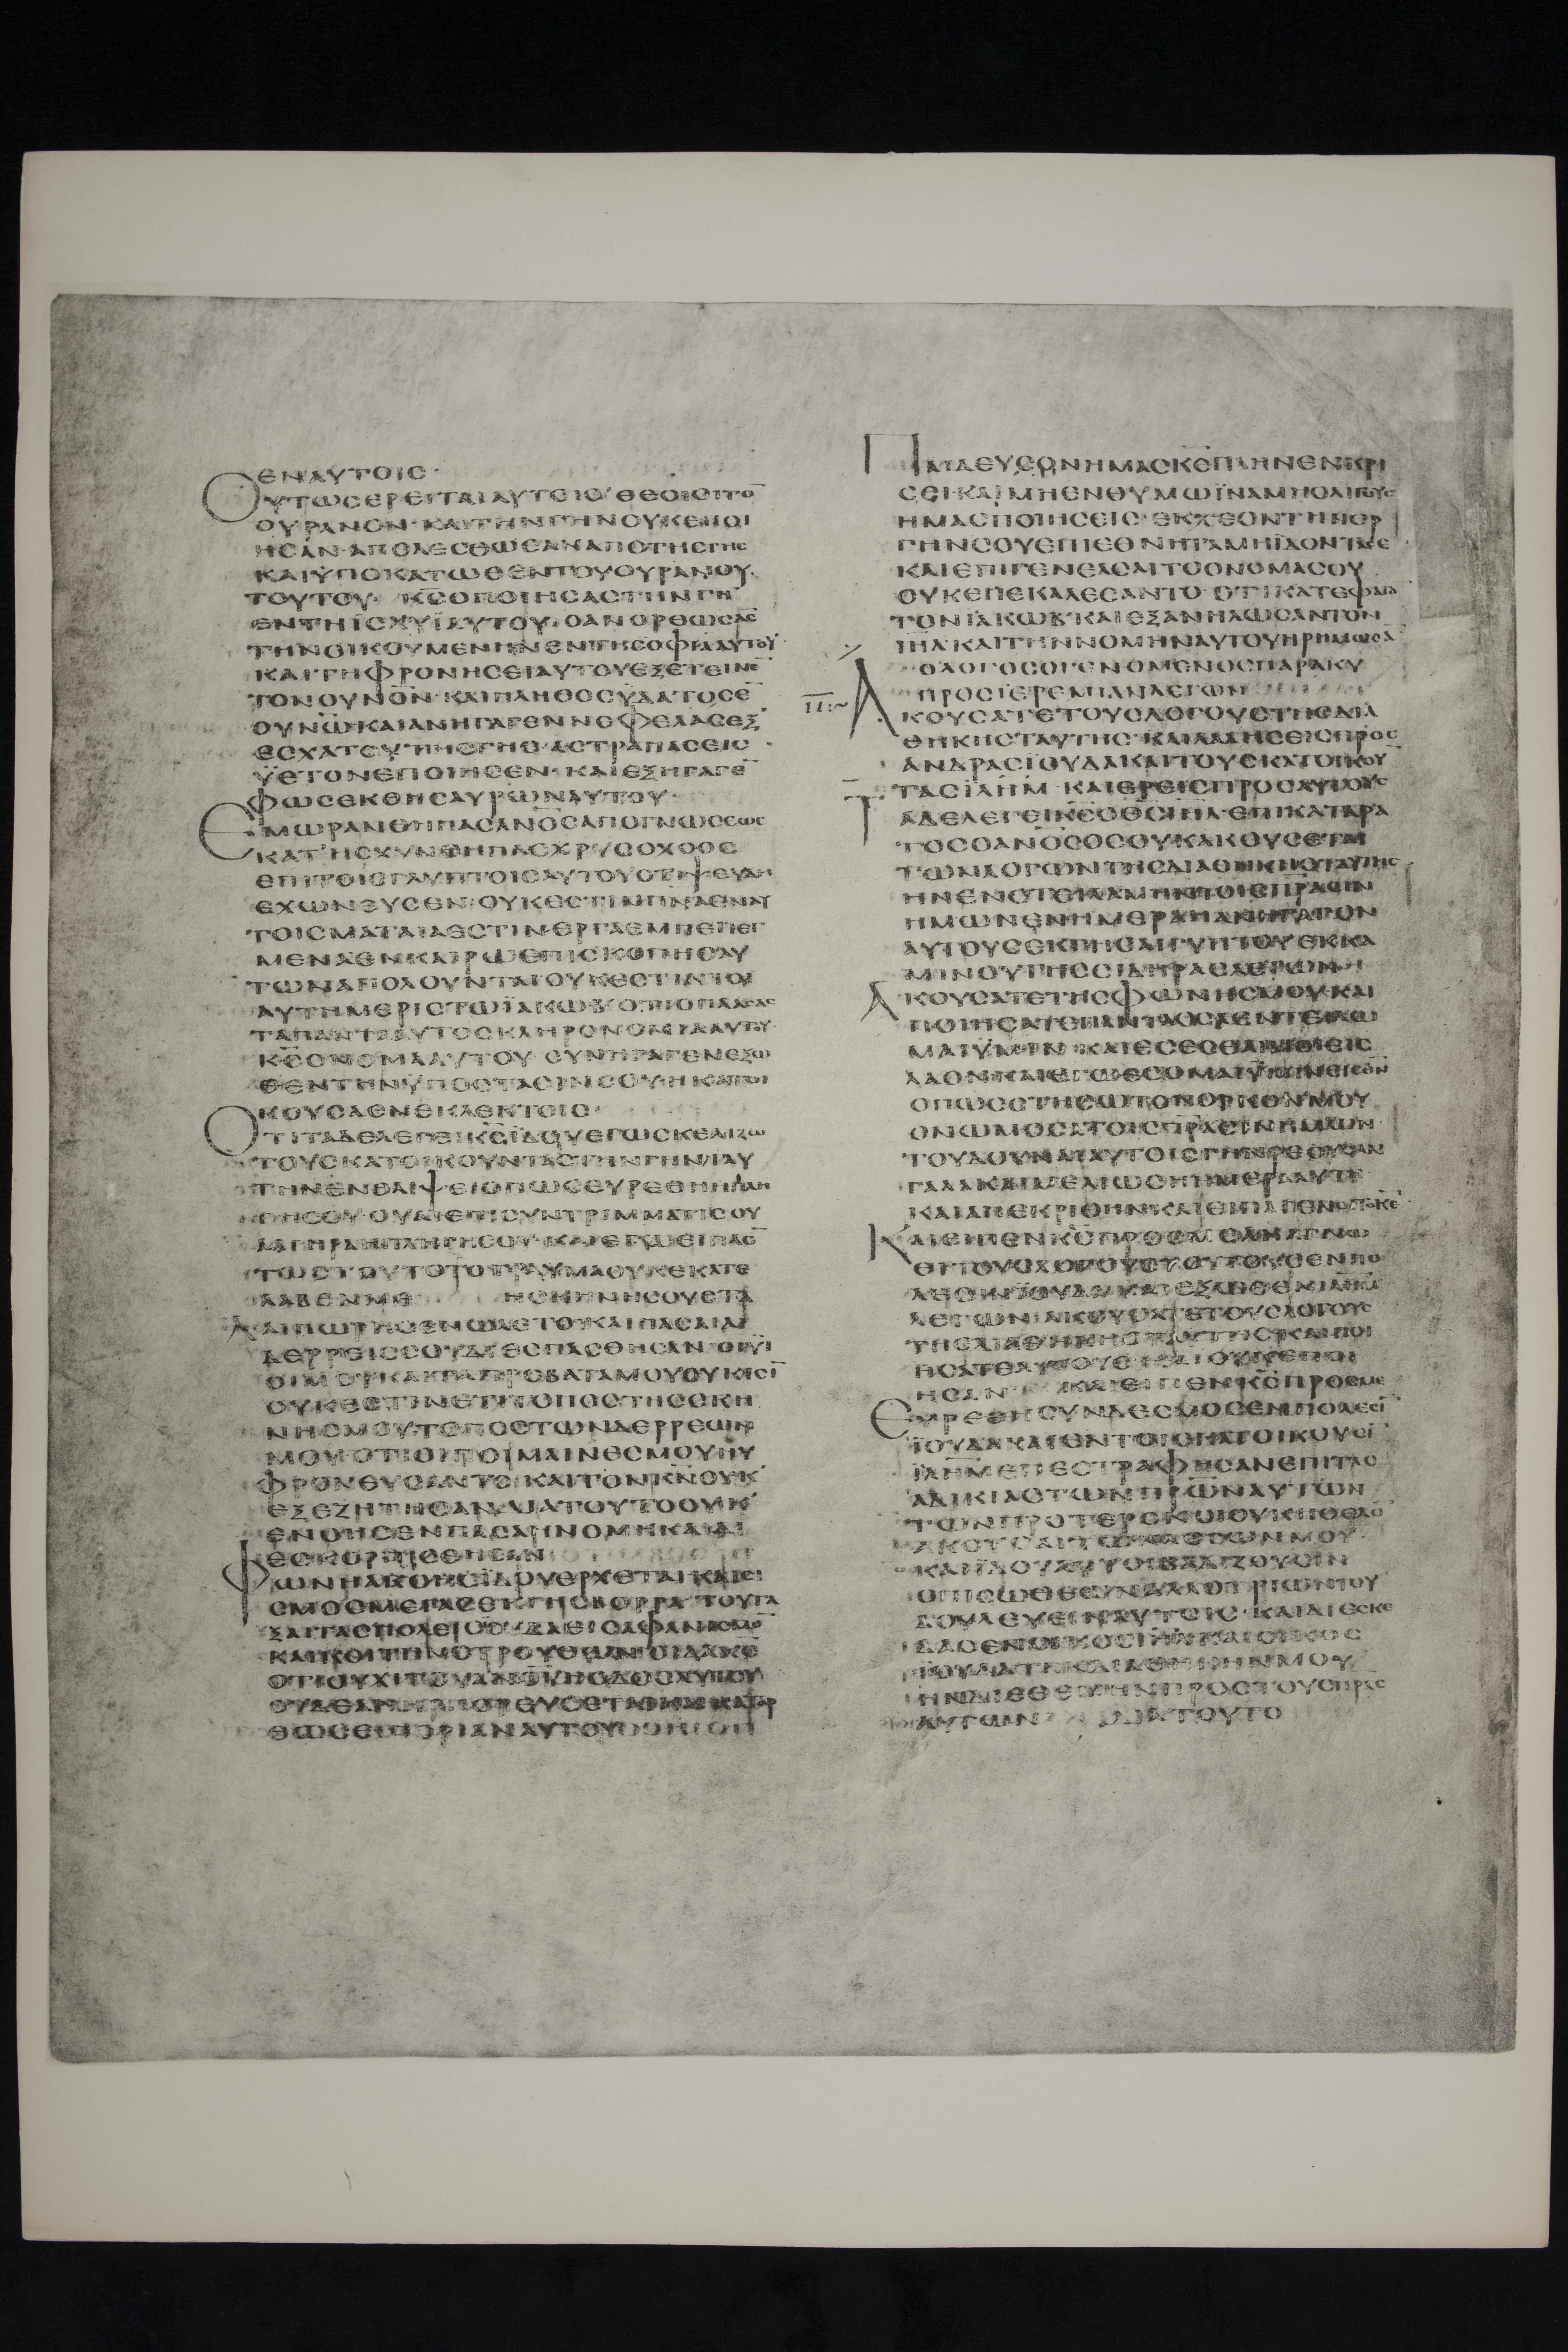 ΕΝΑΥΤΟΙΣ·
ΟΥΤΩΣΕΡΕΙΤΑΙΑΥΤΟΙΣ ΘΕΟΙΟΙΤΟ̅
ΟΥΡΑΝΟΝ ΚΑΙΤΗΝΓΗΝΟΥΚΕΠΟΙ
ΗΣΑΝ ΑΠΟΛΕΣΘΩΣΑΝΑΠΟΤΗΣΓΗΣ
ΚΑΙΫΠΟΚΑΤΩΘΕΝΤΟΥΟΥΡΑΝΟΥ
ΤΟΥΤΟΥ· Κ̅Σ̅ΟΠΟΙΗΣΑΣΤΗΝΓΗ̅
ΕΝΤΗΪΣΧΥΪΑΥΤΟΥ· ΟΑΝΟΡΘΩΣΑΣ
ΤΗΝΟΙΚΟΥΜΕΝΗΝΕΝΤΗΣΟΦΙΑΑΥΤΟΥ
ΚΑΙΤΗΦΡΟΝΗΣΕΙΑΥΤΟΥΕΞΕΤΕΙΝΕ̅
ΤΟΝΟΥΝΟ̅Ν̅ ΚΑΙΠΛΗΘΟΣΥΔΑΤΟΣΕ̅
ΟΥΝΩ̅ΚΑΙΑΝΗΓΑΓΕΝΝΕΦΕΛΑΣΕΞ
ΕΣΧΑΤΟΥΤΗΣΓΗΣ ΑΣΤΡΑΠΑΣΕΙΣ
ΫΕΤΟΝΕΠΟΙΗΣΕΝ ΚΑΙΕΞΗΓΑΓΕ̅
ΦΩΣΕΚΘΗΣΑΥΡΩΝΑΥΤΟΥ·
ΕΜΩΡΑΝΘΗΠΑΣΑΝΟ̅Σ̅ΑΠΟΓΝΩΣΕΩΣ
ΚΑΤΗΣΧΥΝΘΗΠΑΣΧΡΥΣΟΧΟΟΣ
ΕΠΙΤΟΙΣΓΛΥΠΤΟΙΣΑΥΤΟΥΟΤΙΨΕΥΔΗ
ΕΧΩΝΕΥΣΕΝ ΟΥΚΕΣΤΙΝΠ̅Ν̅Α̅ΕΝΑΥ
ΤΟΙΣΜΑΤΑΙΑΕΣΤΙΝΕΡΓΑΕΜΠΕΠΕΓ
ΜΕΝΑΕΝΚΑΙΡΩΕΠΙΣΚΟΠΗΣΑΥ
ΤΩΝΑΠΟΛΟΥΝΤΑΙΟΥΚΕΣΤΙΝΤΟΙ
ΑΥΤΗΜΕΡΙΣΤΩΪΑΚΩΒ ΟΤΙΟΠΛΑΣΑΣ
ΤΑΠΑΝΤΑΑΥΤΟΣΚΛΗΡΟΝΟΜΙΑΑΥΤΟΥ
Κ̅Σ̅ΟΝΟΜΑΑΥΤΟΥ ΣΥΝΗΓΑΓΕΝΕΞΩ
ΘΕΝΤΗΝΫΠΟΣΤΑΣΙΝΣΟΥΗΚΑΤΟΙ
ΚΟΥΣΑΕΝΕΚΛΕΚΤΟΙΣ·
ΟΤΙΤΑΔΕΛΕΓΕΙΚ̅Σ̅ΪΔΟΥΕΓΩΣΚΕΛΙΖΩ
ΤΟΥΣΚΑΤΟΙΚΟΥΝΤΑΣΤΗΝΓΗΝΤΑΥ
ΤΗΝΕΝΘΛΙΨΕΙΟΠΩΣΕΥΡΕΘΗΗΠΛΗ
ΓΗΣΟΥ ΟΥΑΙΕΠΙΣΥΝΤΡΙΜΜΑΤΙΣΟΥ
ΑΛΓΗΡΑΗΠΛΗΓΗΣΟΥ ΚΑΙΕΓΩΕΙΠΑΟ̅
ΤΩΣΤΟΥΤΟΤΟΤΡΑΥΜΑΟΥΚΕΚΑΤΕ
ΛΑΒΕΝΜΕ ΗΣΚΗΝΗΣΟΥΕΤΑ
ΛΑΙΠΩΡΗΣΕΝΩΛΕΤΟ ΚΑΙΠΑΣΑΙΑΙ
ΔΕΡΡΕΙΣΣΟΥΔΙΕΣΠΑΣΘΗΣΑΝ ΟΙΥΪ
ΟΙΜΟΥΚΑΙΤΑΠΡΟΒΑΤΑΜΟΥΟΥΚΕΙΣΙ̅
ΟΥΚΕΣΤΙΝΕΤΙΤΟΠΟΣΤΗΣΣΚΗ
ΝΗΣΜΟΥ ΤΟΠΟΣΤΩΝΔΕΡΡΕΩΝ
ΜΟΥ ΟΤΙΟΙΠΟΙΜΑΙΝΕΣΜΟΥΗΥ
ΦΡΟΝΕΥΣΑΝΤΟ ΚΑΙΤΟΝΚ̅Ν̅ΟΥΚ
ΕΞΕΖΗΤΗΣΑΝ ΔΙΑΤΟΥΤΟΟΥΚ
ΕΝΟΗΣΕΝΠΑΣΑΗΝΟΜΗΚΑΙΔΙ
ΕΣΚΟΡΠΙΣΘΗΣΑΝ
ΦΩΝΗΑΚΟΗΣΪΔΟΥΕΡΧΕΤΑΙΚΑΙΣΙ
ΣΜΟΣΜΕΓΑΣΕΚΓΗΣΒΟΡΡΑ ΤΟΥΤΑ
ΞΑΙΤΑΣΠΟΛΕΙΣΪΟΥΔΑΕΙΣΑΦΑΝΙΣΜΟ̅
ΚΑΙΚΟΙΤΗΝΣΤΡΟΥΘΩΝ ΟΙΔΑΚ̅Ε̅
ΟΤΙΟΥΧΙΤΟΥΑΝΟΥΗΟΔΟΣΑΥΤΟΥ
ΟΥΔΕΑΝΗΡΠΟΡΕΥΣΕΤΑΙΚΑΙΚΑΤΟΡ
ΘΩΣΕΙΠΟΡΙΑΝΑΥΤΟΥ
ΠΑΙΔΕΥΣΟΝΗΜΑΣΚ̅Ε̅ΠΛΗΝΕΝΚΡΙ
ΣΕΙ ΚΑΙΜΗΕΝΘΥΜΩΪΝΑΜΗΟΛΙΓΟΥΣ
ΗΜΑΣΠΟΙΗΣΕΙΣ ΕΚΧΕΟΝΤΗΝΟΡ
ΓΗΝΣΟΥΕΠΙΕΘΝΗΤΑΜΗΪΔΟΝΤΑΣΕ
ΚΑΙΕΠΙΓΕΝΕΑΣΑΙΤΟΟΝΟΜΑΣΟΥ
ΟΥΚΕΠΕΚΑΛΕΣΑΝΤΟ ΟΤΙΚΑΤΕΦΑΓΟ̅
ΤΟΝΪΑΚΩΒ ΚΑΙΕΞΑΝΗΛΩΣΑΝΤΟΝ
Ι̅Η̅Λ̅ ΚΑΙΤΗΝΝΟΜΗΝΑΥΤΟΥΗΡΗΜΩΣΑ̅
ΟΛΟΓΟΣΟΓΕΝΟΜΕΝΟΣΠΑΡΑΚ̅Υ̅
ΠΡΟΣΪΕΡΕΜΙΑΝΛΕΓΩΝ
ΙΙ ΑΚΟΥΣΑΤΕΤΟΥΣΛΟΓΟΥΣΤΗΣΔΙΑ
ΘΗΚΗΣΤΑΥΤΗΣ ΚΑΙΛΑΛΗΣΕΙΣΠΡΟΣ
ΑΝΔΡΑΣΪΟΥΔΑΚΑΙΤΟΥΣΚΑΤΟΙΚΟΥ̅
ΤΑΣΙ̅Λ̅Η̅Μ̅ ΚΑΙΕΡΕΙΣΠΡΟΣΑΥΤΟΥΣ
ΤΑΔΕΛΕΓΕΙΚ̅Σ̅Ο̅Θ̅Σ̅Ι̅Η̅Λ̅ ΕΠΙΚΑΤΑΡΑ
ΤΟΣΟΑΝΟ̅Σ̅ΟΣΟΥΚΑΚΟΥΣΕΤΑΙ
ΤΩΝΛΟΓΩΝΤΗΣΔΙΑΘΗΚΗΣΤΑΥΤΗΣ
ΗΣΕΝΕΤΕΙΛΑΜΗΝΤΟΙΣΠΡΑΣΙΝ
ΗΜΩΝΕΝΗΜΕΡΑΗΑΝΗΓΑΓΟΝ
ΑΥΤΟΥΣΕΚΓΗΣΑΙΓΥΠΤΟΥΕΚΚΑ
ΜΙΝΟΥΤΗΣΣΙΔΗΡΑΣΛΕΓΩΝ
ΑΚΟΥΣΑΤΕΤΗΣΦΩΝΗΣΜΟΥΚΑΙ
ΠΟΙΗΣΑΤΕΠΑΝΤΑΟΣΑΕΝΤΕΙΛΩ
ΜΑΙΫΜΙΝ ΚΑΙΕΣΕΣΘΑΙΜΟΙΕΙΣ
ΛΑΟΝΚΑΙΕΓΩΕΣΟΜΑΙΫΜΙΝΕΙΣΘ̅Ν̅
ΟΠΩΣΣΤΗΣΩΤΟΝΟΡΚΟΝΜΟΥ
ΟΝΩΜΟΣΑΤΟΙΣΠ̅ΡΑΣΙΝΗΜΩΝ
ΤΟΥΔΟΥΝΑΙΑΥΤΟΙΣΓΗΝΡΕΟΥΣΑΝ
ΓΑΛΑΚΑΙΜΕΛΙΩΣΗΗΜΕΡΑΑΥΤΗ
ΚΑΙΑΠΕΚΡΙΘΗΝΚΑΙΕΙΠΑΓΕΝΟΙΤΟΚ̅Ε̅
ΚΑΙΕΙΠΕΝΚ̅Σ̅ΠΡΟΣΜΕΑΝΑΓΝΩ
ΘΙΤΟΥΣΛΟΓΟΥΣΤΟΥΤΟΥΣΕΝΠΟ
ΛΕΣΙΝΪΟΥΔΑΚΑΙΕΞΩΘΕΝΙ̅Λ̅Η̅Μ̅
ΛΕΓΩΝ ΑΚΟΥΣΑΤΕΤΟΥΣΛΟΓΟΥΣ
ΤΗΣΔΙΑΘΗΚΗΣΤΑΥΤΗΣΚΑΙΠΟΙ
ΗΣΑΤΕΑΥΤΟΥΣ ΚΑΙΟΥΚΕΠΟΙ
ΗΣΑΝ ΚΑΙΕΙΠΕΝΚ̅Σ̅ΠΡΟΣΜΕ
ΕΥΡΕΘΗΣΥΝΔΕΣΜΟΣΕΝΠΟΛΕΣΙ̅
ΪΟΥΔΑΚΑΙΕΝΤΟΙΣΚΑΤΟΙΚΟΥΣΙ̅
Ι̅Λ̅Η̅Μ̅ΕΠΕΣΤΡΑΦΗΣΑΝΕΠΙΤΑΣ
ΑΔΙΚΙΑΣΤΩΝΠ̅Ρ̅Ω̅Ν̅ΑΥΤΩΝ
ΤΩΝΠΡΟΤΕΡΟΝΟΙΟΥΚΗΘΕΛΟ̅
ΚΑΙΪΔΟΥΑΥΤΟΙΒΑΔΙΖΟΥΣΙΝ
ΟΠΙΣΩΘΕΩΝΑΛΛΟΤΡΙΩΝΤΟΥ
ΔΟΥΛΕΥΕΙΝΑΥΤΟΙΣ ΚΑΙΔΙΕΣΚΕ
ΔΑΣΕΝΟΙΚΟΣΙ̅Η̅Λ̅ΚΑΙΟΙΚΟΣ
ΪΟΥΔΑΤΗΝΔΙΑΘΗΚΗΝΜΟΥ
ΗΝΔΙΕΘΕΜΗΝΠΡΟΣΤΟΥΣΠ̅Ρ̅Α̅Σ̅
ΑΥΤΩΝ ΔΙΑΤΟΥΤΟ